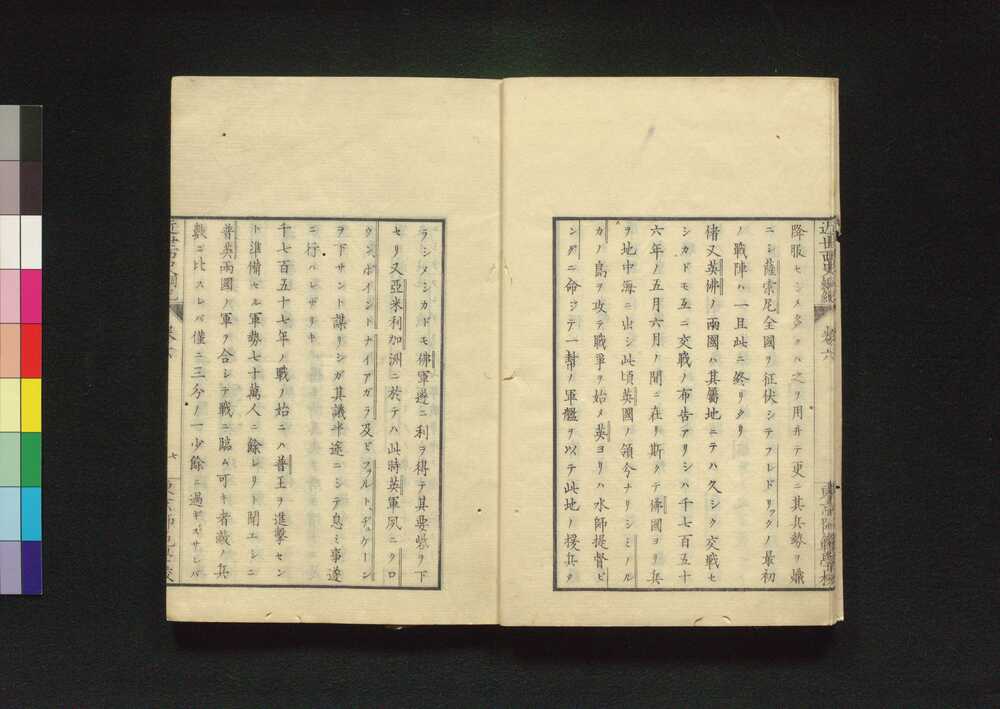 降服セシメ多クハ之ヲ用井テ更ニ其兵勢ヲ熾
ニシ薩索尼全國ヲ征伏シテフレドリックノ最初
ノ戰陣ハ一且此ニ終リタリ
偖又英佛ノ兩國ハ其屬地ニテハ久シク交戰セ
シカドモ互ニ交戰ノ布告アリシハ千七百五十
六年ノ五月六月ノ間ニ在リ斯クテ佛國ヨリ兵
ヲ地中海ニ出シ此頃英國ノ領分ナリシミノル
カノ島ヲ攻テ戰爭ヲ始メ英ヨリハ水師提督ビ
ングニ命シテ一幇ノ軍艦ヲ以テ此地ノ援兵タ
ラシメシカドモ佛軍遂ニ利ヲ得テ其要ヲ下
セリ又亞米利加洲ニ於テハ此時英軍夙ニクロ
ウンポイントナイアガラ及ビフォルト、デュケーン
ヲ下サント謀リシガ其議半途ニシテ息ミ事遂
ニ行ハレザリキ
千七百五十七年ノ戰ノ始ニハ普王ヲ進擊セン
ト準備セル軍勢七十萬人ニ餘レリト聞エシニ
普英兩國ノ軍ヲ合シテ戰ニ臨ム可キ者敵ノ兵
數ニ比スレバ僅ニ三分ノ一少餘ニ過ギズサレバ
七
卷六